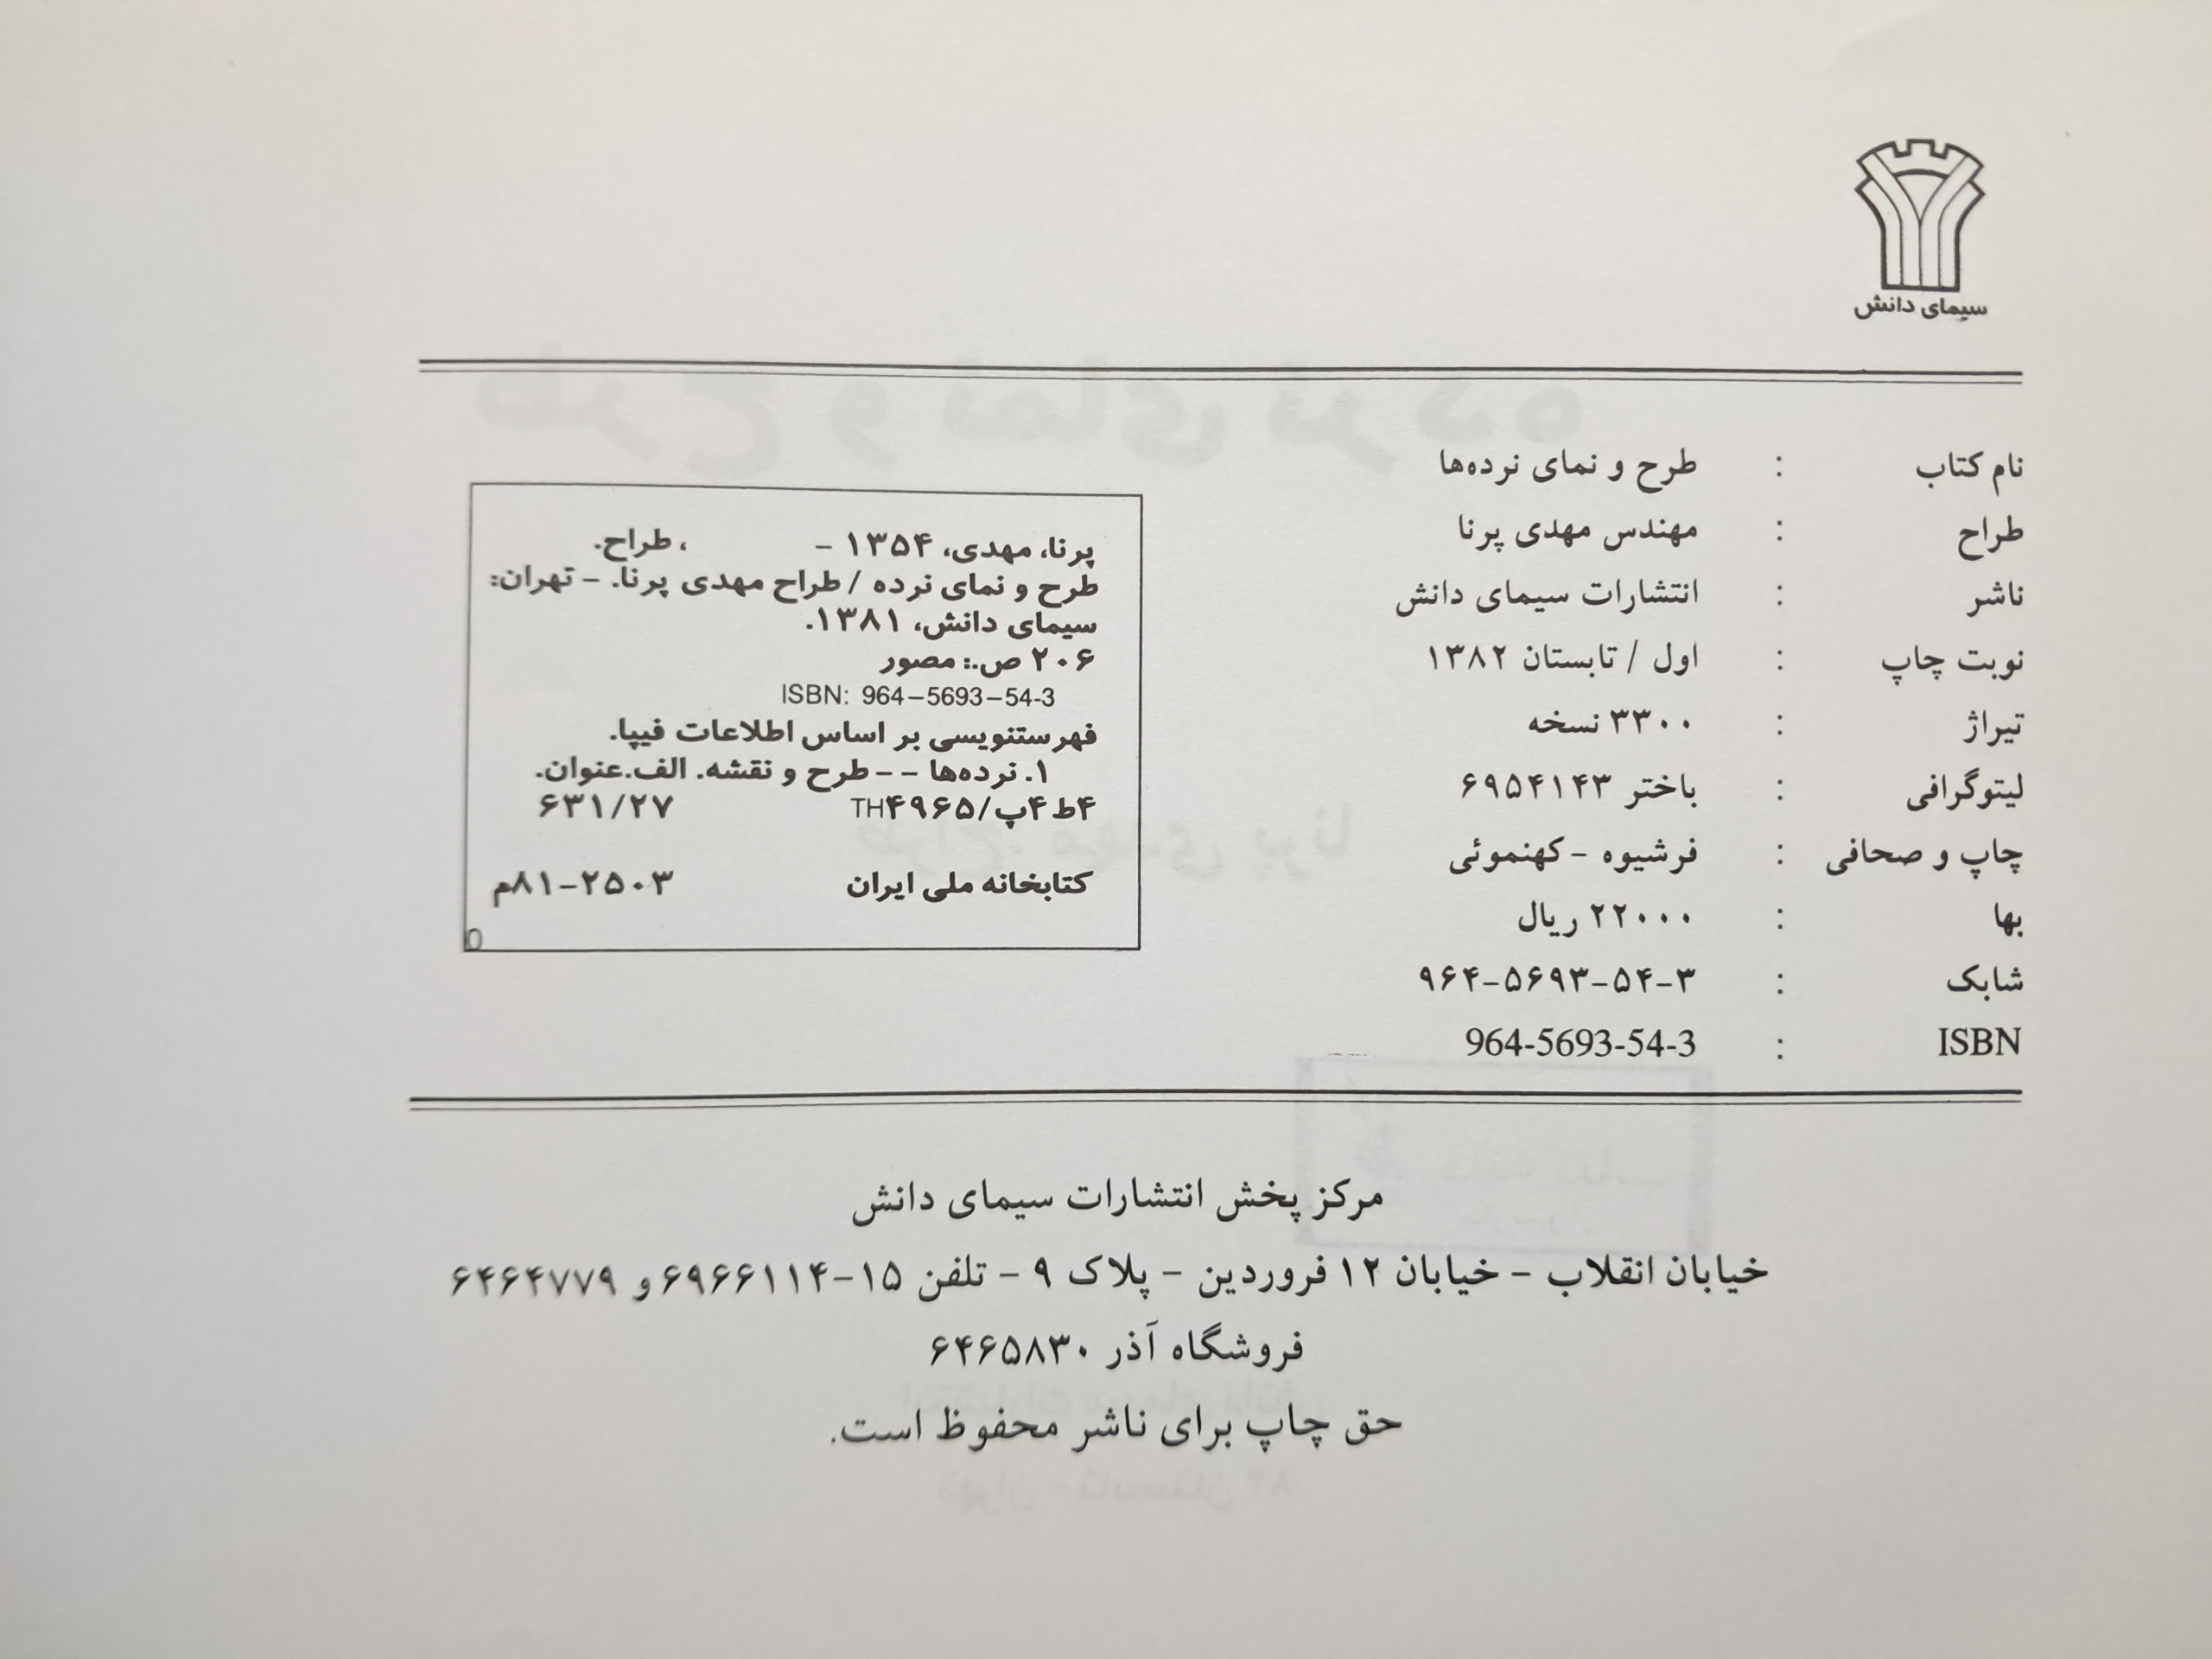 سیمای دانش
نام کتاب : طرح و نمای نرده‌ها
طراح : مهندس مهدی پرنا
ناشر : انتشارات سیمای دانش
نوبت چاپ : اول / تابستان ۱۳۸۲
تیراژ : ۳۳۰۰ نسخه
لیتوگرافی : باختر ۶۹۵۴۱۴۳
چاپ و صحافی : فرشیوه - کهنموئی
بها : ۲۲۰۰۰ ریال
شابک : ۹۶۴-۵۶۹۳-۵۴-۳
ISBN : 964-5693-54-3
پرنا، مهدی، ۱۳۵۴ - ، طراح.
طرح و نمای نرده / طراح مهدی پرنا. - تهران:
سیمای دانش، ۱۳۸۱.
۲۰۶ ص.: مصور
ISBN: 964-5693-54-3
فهرستنویسی بر اساس اطلاعات فیپا.
۱. نرده‌ها -- طرح و نقشه. الف.عنوان.
۴ط۴پ/TH۴۹۶۵ ۶۳۱/۲۷
کتابخانه ملی ایران ۸۱-۲۵۰۳م
مرکز پخش انتشارات سیمای دانش
خیابان انقلاب - خیابان ۱۲ فروردین - پلاک ۹ - تلفن ۱۵-۶۹۶۶۱۱۴ و ۶۴۶۴۷۷۹
فروشگاه آذر ۶۴۶۵۸۳۰
حق چاپ برای ناشر محفوظ است.